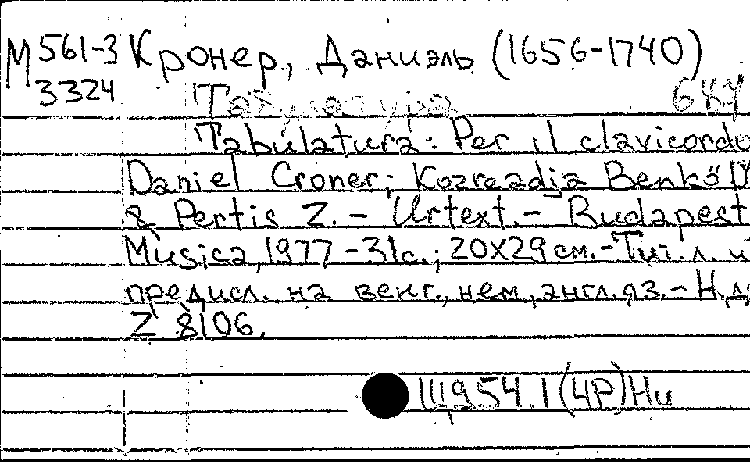 М 561-3 Кронер, Даниэль (1656-1740)
3324 Табулатура
Tabulatura: Per il clavicordo
Daniel Croner; Közreadja Benkö D
& Pertis Z. - Urtext. - Budapest
Musica, 1977 - 31с.; 20x29 см. - Тит. л. и
предисл. на венг., нем., англ. яз. - Н.д.
Z 8106.
Щ954.1(4Р)Ни